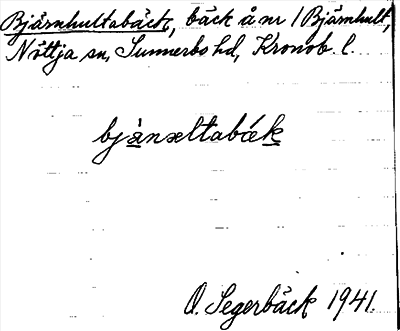 Bjärnhultabäck, bäck å nr 1 Bjärnhult,
Nöttja sn, Sunnerbo hd, Kronob. l.
bjànæltabák
O. Segerbäck 1941.